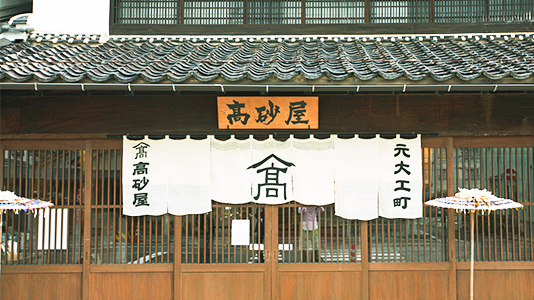 髙砂屋
元大工町
髙
髙
髙砂屋